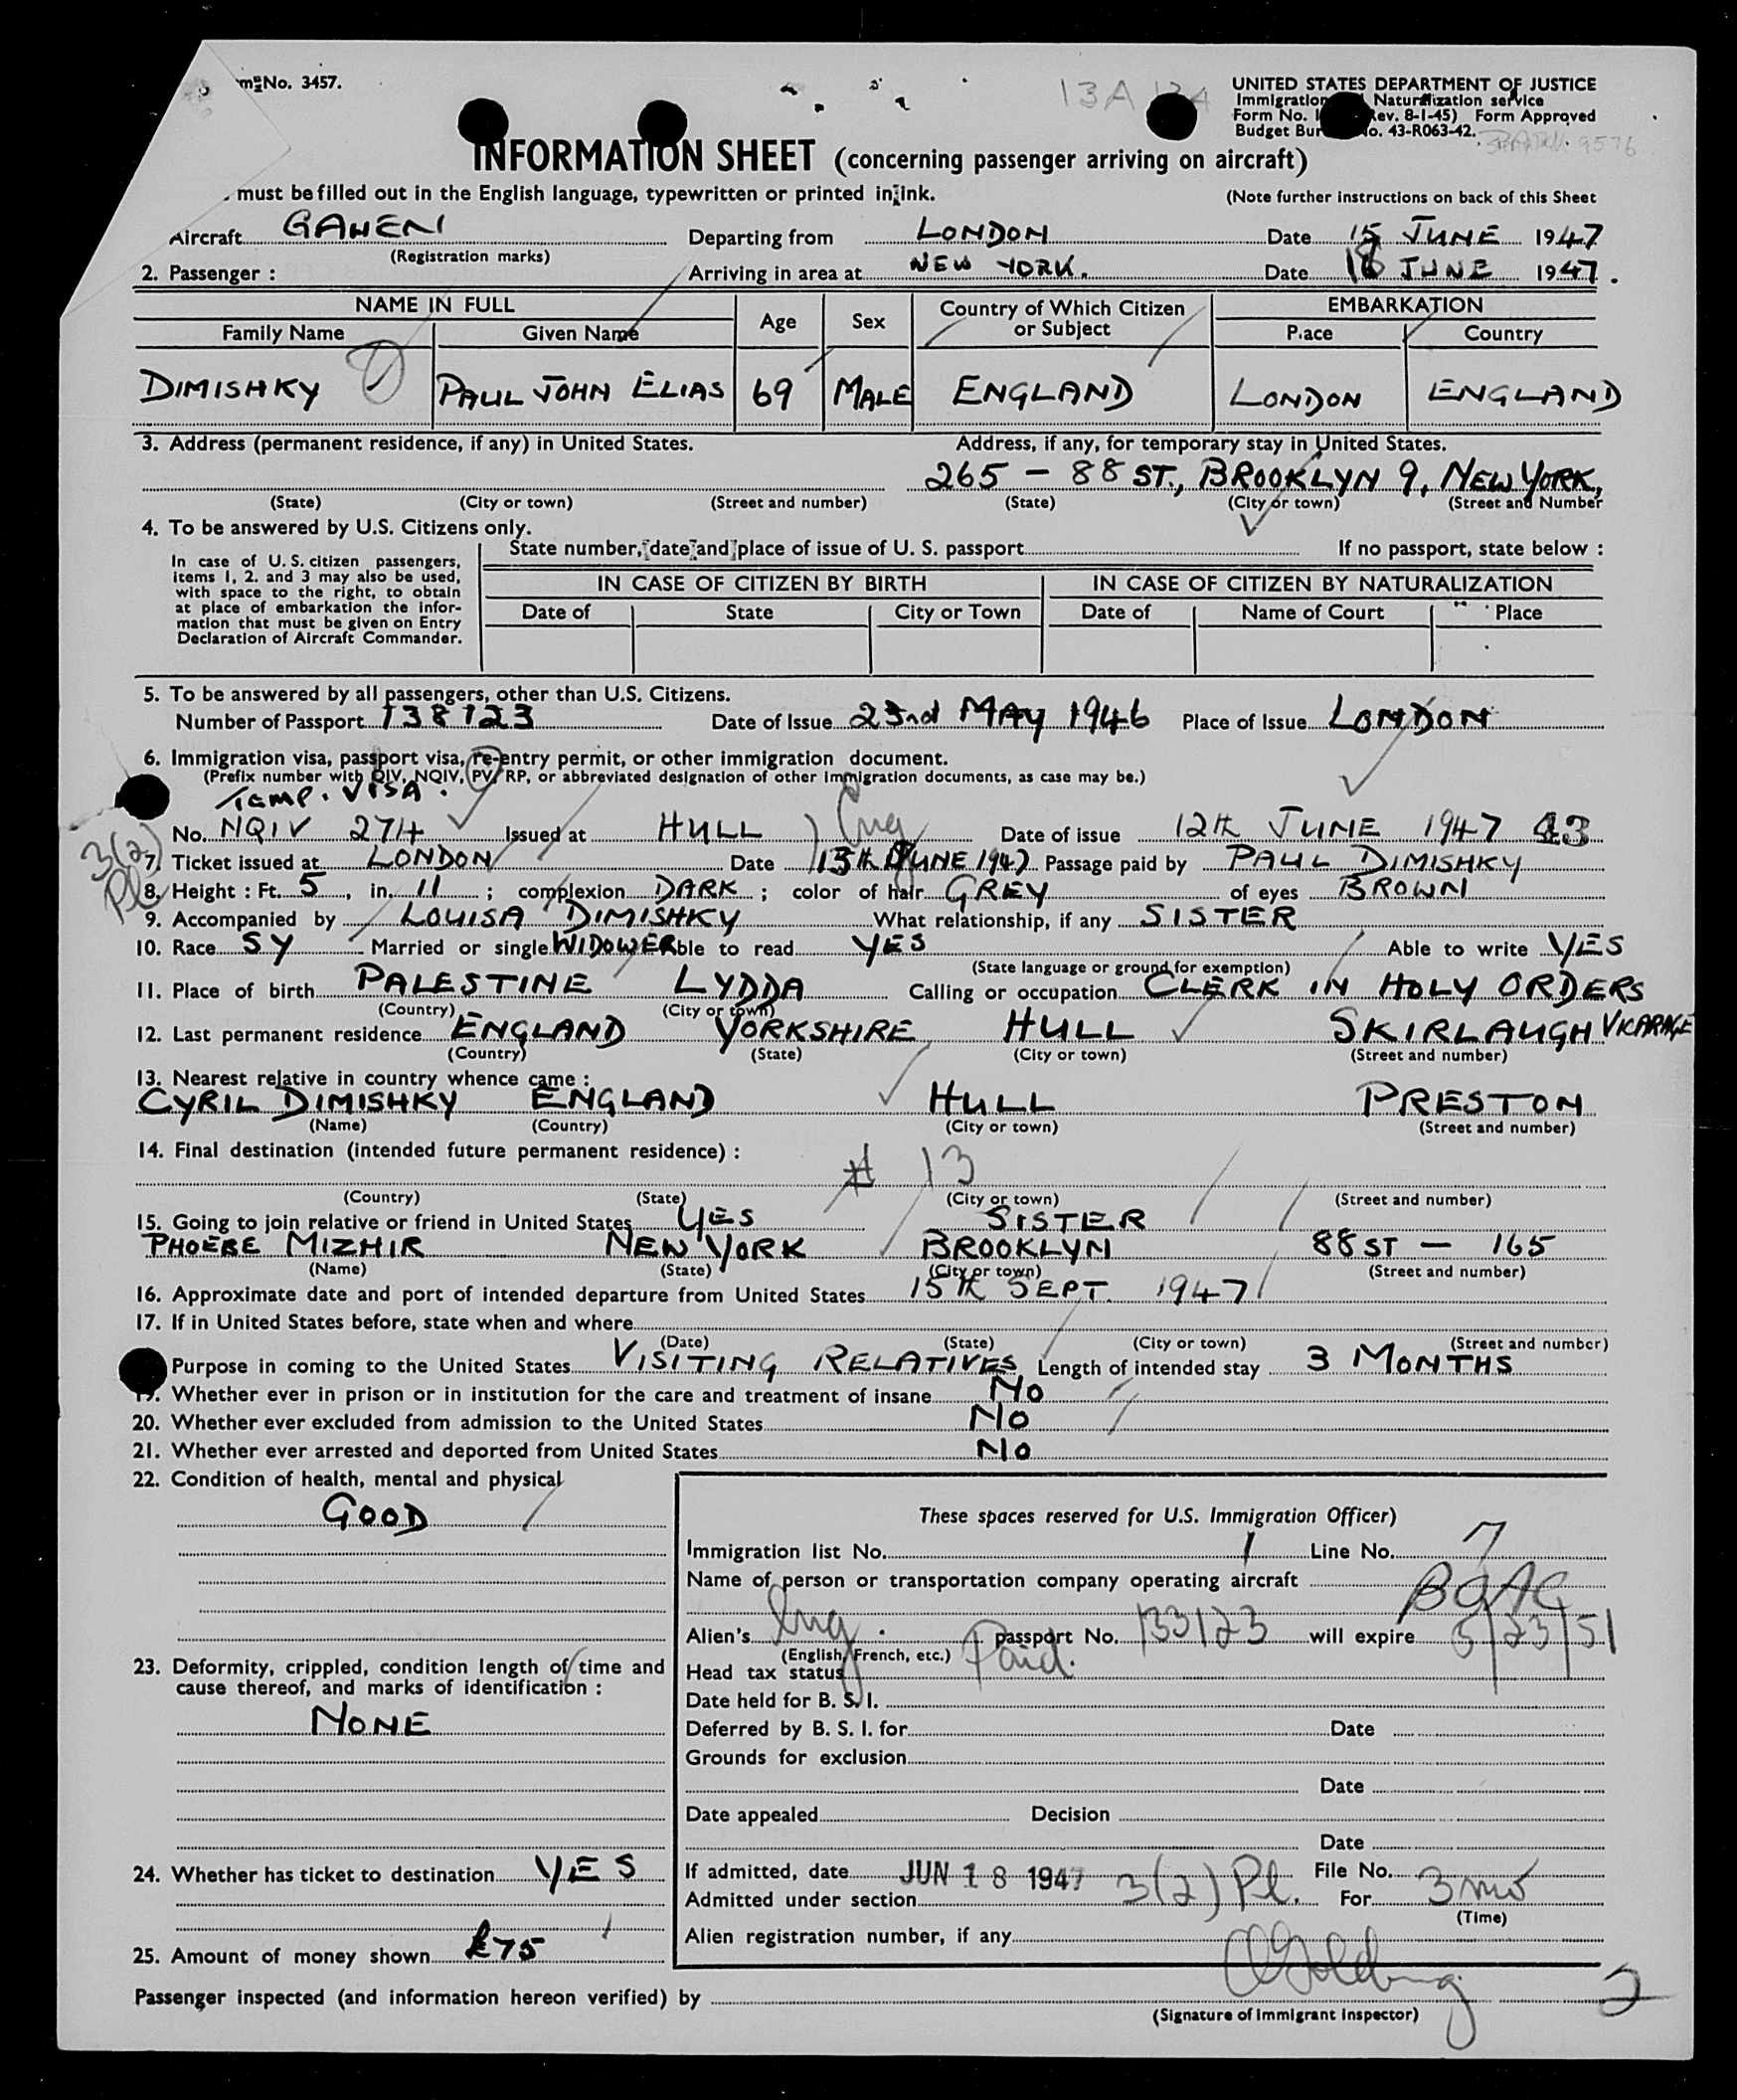 No. 3457.
13A
UNITED STATES DEPARTMENT OF JUSTICE
Immigration Naturalization service
Form No. I Rev. 8-1-45) Form Approved
Budget Bur No. 43-R063-42.
9576
INFORMATION SHEET (concerning passenger arriving on aircraft)
must be filled out in the English language, typewritten or printed in ink. (Note further instructions on back of this Sheet
Aircraft GAHENI Departing from LONDON Date 15 JUNE 1947
(Registration marks)
2. Passenger : Arriving in area at NEW YORK. Date 18 JUNE 1947.
NAME IN FULL Age Sex Country of Which Citizen or Subject EMBARKATION
Family Name Given Name Place Country
DIMISHKY PAUL JOHN ELIAS 69 MALE ENGLAND LONDON ENGLAND
3. Address (permanent residence, if any) in United States. Address, if any, for temporary stay in United States.
265 - 88 ST., BROOKLYN 9, NEW YORK,
(State) (City or town) (Street and number) (State) (City or town) (Street and Number
4. To be answered by U.S. Citizens only.
In case of U.S. citizen passengers,
items 1, 2. and 3 may also be used,
with space to the right, to obtain
at place of embarkation the infor-
mation that must be given on Entry
Declaration of Aircraft Commander.
State number, date and place of issue of U. S. passport If no passport, state below :
IN CASE OF CITIZEN BY BIRTH IN CASE OF CITIZEN BY NATURALIZATION
Date of State City or Town Date of Name of Court Place
5. To be answered by all passengers, other than U.S. Citizens.
Number of Passport 138123 Date of Issue 23nd MAY 1946 Place of Issue LONDON
6. Immigration visa, passport visa, re-entry permit, or other immigration document.
(Prefix number with QIV, NQIV, PV, RP, or abbreviated designation of other immigration documents, as case may be.)
TEMP. VISA.
No. NQIV 274 Issued at HULL Eng Date of issue 12th JUNE 1947
3(2)
Pl
7. Ticket issued at LONDON Date 13th JUNE 1947 Passage paid by PAUL DIMISHKY
8. Height : Ft. 5, in. 11 ; complexion DARK ; color of hair GREY of eyes BROWN
9. Accompanied by LOUISA DIMISHKY What relationship, if any SISTER
10. Race SY Married or single WIDOWER ble to read YES Able to write YES
(State language or ground for exemption)
11. Place of birth PALESTINE LYDDA Calling or occupation CLERK IN HOLY ORDERS
(Country) (City or town)
12. Last permanent residence ENGLAND YORKSHIRE HULL SKIRLAUGH VICARAGE
(Country) (State) (City or town) (Street and number)
13. Nearest relative in country whence came :
CYRIL DIMISHKY ENGLAND HULL PRESTON
(Name) (Country) (City or town) (Street and number)
14. Final destination (intended future permanent residence) :
# 13
(Country) (State) (City or town) (Street and number)
15. Going to join relative or friend in United States YES SISTER
PHOEBE MIZHIR NEW YORK BROOKLYN 88 ST - 165
(Name) (State) (City or town) (Street and number)
16. Approximate date and port of intended departure from United States 15th SEPT. 1947
17. If in United States before, state when and where
(Date) (State) (City or town) (Street and number)
Purpose in coming to the United States VISITING RELATIVES Length of intended stay 3 MONTHS
19. Whether ever in prison or in institution for the care and treatment of insane NO
20. Whether ever excluded from admission to the United States NO
21. Whether ever arrested and deported from United States NO
22. Condition of health, mental and physical
GOOD
23. Deformity, crippled, condition length of time and
cause thereof, and marks of identification :
NONE
24. Whether has ticket to destination YES
25. Amount of money shown £75
These spaces reserved for U.S. Immigration Officer)
Immigration list No. 1 Line No. 7
Name of person or transportation company operating aircraft
BOAC
Alien's Eng. passport No. 133123 will expire 5/23/51
(English, French, etc.)
Head tax status Paid.
Date held for B. S. I.
Deferred by B. S. I. for Date
Grounds for exclusion
Date
Date appealed Decision
Date
If admitted, date JUN 18 1947 File No.
Admitted under section 3(2) Pl. For 3 mos
(Time)
Alien registration number, if any
Passenger inspected (and information hereon verified) by
(Signature of Immigrant Inspector)
2